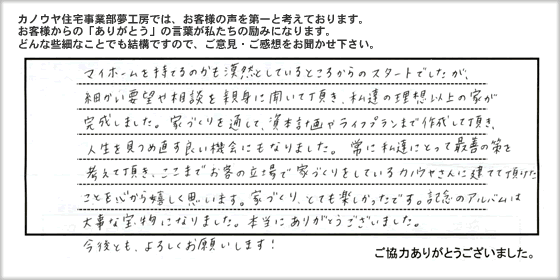 カノウヤ住宅事業部夢工房では、お客様の声を第一と考えております。
お客様からの「ありがとう」の言葉が私たちの励みになります。
どんな些細なことでも結構ですので、ご意見・ご感想をお聞かせ下さい。
マイホームを持てるのかも漠然としているところからのスタートでしたが、
細かい要望や相談を親身に聞いて頂き、私達の理想以上の家が
完成しました。家づくりを通して、資本計画やライフプランまで作成して頂き、
人生を見つめ直す良い機会にもなりました。常に私達にとって最善の策を
考えて頂き、ここまでお客の立場で家づくりをしているカノウヤさんに建てて頂けた
ことを心から嬉しく思います。家づくり、とても楽しかったです。記念のアルバムは
大事な宝物になりました。本当にありがとうございました。
今後とも、よろしくお願いします!
ご協力ありがとうございました。